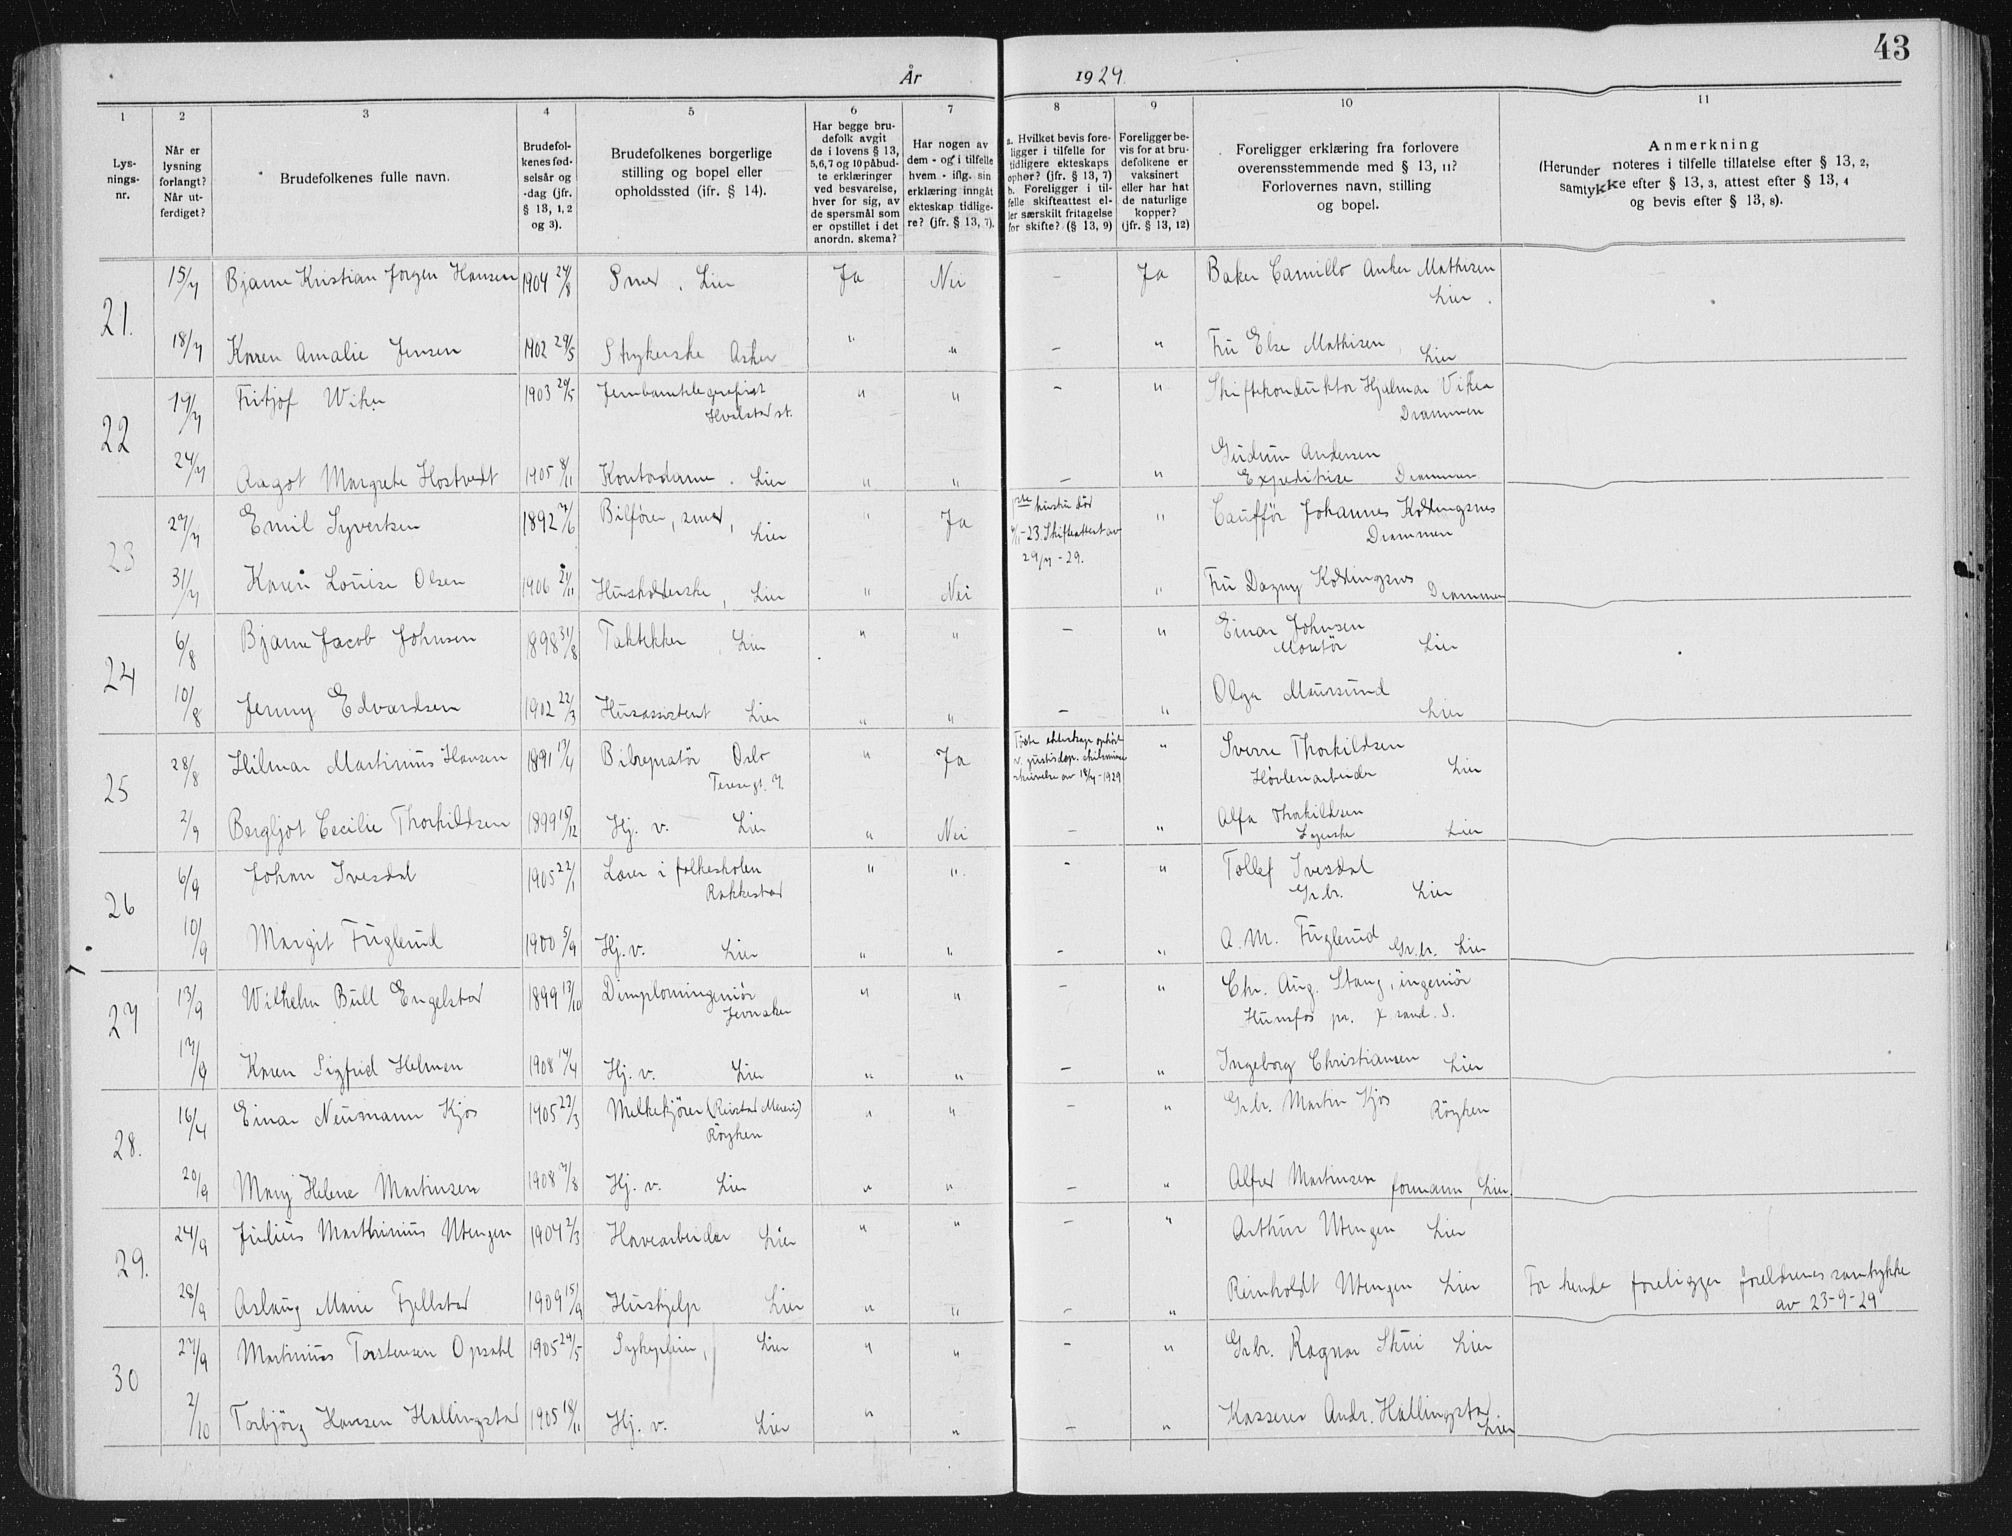 43
År 1929.
1 2 3 4 5 6 7 8 9 10 11
Lys-
nings-
nr.
Når er
lysning
forlangt?
Når ut-
ferdiget?
Brudefolkenes fulle navn.
Brudefol-
kenes fød-
selsår og
-dag (jfr.
§ 13, 1, 2
og 3).
Brudefolkenes borgerlige
stilling og bopel eller
opholdssted (ifr. § 14).
Har begge bru-
defolk avgit
de i lovens § 13,
5,6,7 og 10 påbud-
te erklæringer
ved besvarelse,
hver for sig, av
de spørsmål som
er opstillet i det
anordn. skema?
Har nogen av
dem - og i tilfelle
hvem - iflg. sin
erklæring inngåt
ekteskap tidlige-
re? (jfr. § 13, 7).
a. Hvilket bevis fore-
ligger i tilfelle for
tidligere ekteskaps
ophør? (jfr. § 13, 7)
b. Foreligger i til-
felle skifteattest el-
ler særskilt fritagelse
for skifte? (§ 13, 9)
Foreligger be-
vis for at bru-
defolkene er
vaksinert
eller har hat
de naturlige
kopper?
(jfr. § 13, 12)
Foreligger erklæring fra forlovere
overensstemmende med § 13, 11?
Forlovernes navn, stilling
og bopel.
Anmerkning
(Herunder noteres i tilfelle tillatelse efter § 13, 2,
samtykke efter § 13, 3, attest efter § 13, 4
og bevis efter § 13, 8).
21. 15/7 Bjarne Kristian Jørgen Hansen 1904 24/8 Smed, Lier Ja Nei - Ja Baker Camillo Anker Mathisen
Lier.
18/7 Karen Amalie Jensen 1902 29/5 Strykerske Asker " " - " Fru Else Mathisen, Lier
22 19/7 Fritjof Wiker 1903 29/5 Jernbanetelegrafist " " - " Skiftekonduktør Hjalmar Viker
Hvalstad st. Drammen
24/7 Aagot Margrete Hostvedt 1905 8/11 Kontordame. Lier " " - " Gudrun Andersen
Expeditrise Drammen
23 27/7 Emil Syvertsen 1892 7/6 Bilfører, smed, Lier " Ja hustru død
-23. Skifteattest av
29/7-29.
" Cauffør Johannes Koldingsnes
Drammen
31/7 Karen Louise Olsen 1906 21/11 Husholderske, Lier " Nei " Fru Dagny Koldingsnes Drammen
24 6/8 Bjarne Jacob Johnsen 1898 31/8 Taktekker, Lier " " - " Einar Johnsen
Montør Lier
10/8 Jenny Edvardsen 1902 22/3 Husassistent Lier " " - " Olga Maursund
Lier
25 28/8 Hilmar Martinius Hansen 1891 13/4 Bilreparatør Oslo " Ja
Teresegt. 7.
ekteskap ophørt
v. justisdep. skilsmisse
skrivelse av 18/4-1929
" Sverre Thorkildsen
Høvlerarbeider Lier
2/9 Bergljot Cecilie Thorkildsen 1899 15/12 Hj. v. Lier " Nei - " Alfa Thorkildsen
Syerske Lier
26 6/9 Johan Ivesdal 1905 22/1 Lærer i folkeskolen " " - " Tollef Ivesdal
Rakkestad Gr.br. Lier
10/9 Margit Fuglerud 1900 5/9 Hj. v. Lier " " - " A. M. Fuglerud Gr.br. Lier
27 13/9 Wilhelm Bull Engelstad 1899 13/10 Dimplomingeniør " " - " Chr. Aug. Stang, ingeniør
Jevnaker Hunsfos pr. Krsand. S.
17/9 Karen Sigfrid Helmen 1908 14/4 Hj. v. Lier " " - " Ingeborg Christiansen Lier
28. 16/4 Einar Neumann Kjos 1905 22/3 Melkekjører (Reistad Meieri) " " - " Gr.br. Martin Kjos Røyken
Røyken
20/9 Mary Helene Martinsen 1908 7/8 Hj. v. Lier " " - " Alfred Martinsen formann, Lier.
29. 24/9 Julius Marthinius Utengen 1904 2/3 Havearbeider Lier " " - " Arthur Utengen Lier
28/9 Aslaug Marie Fjellstad 1909 15/9 Hushjelp Lier " " - " Reinholdt Utengen Lier For hende foreligger foreldrenes samtykke
av 23-9-29
30 27/9 Martinius Torstensen Opsahl 1905 24/5 Sykepleier, Lier " " - " Gr.br. Ragnar Skui Lier
2/10 Torbjörg Hansen Hallingstad 1905 18/11 Hj. v. Lier " " - " Kasserer Andr. Hallingstad
Lier